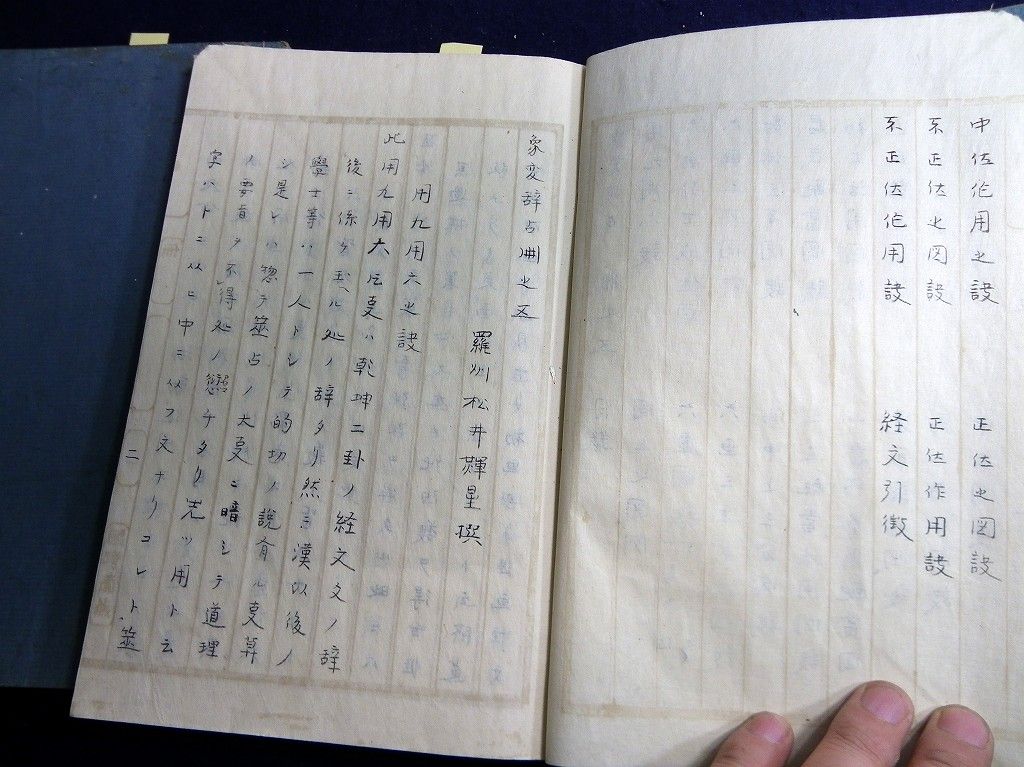 中位作用之訣　正位之図訣
不正位之図訣　正位作用訣
不正位作用訣　経文引徴
象変辞占冊之五
羅州松井輝星撰
用九用六之訣
此用九用六ト云叓ハ乾坤二卦ノ経文文ノ辞
後ニ係ケ玉ル処ノ辞タリ然ニ漢以後ノ
學士等ハ一人トシテ的切ノ説有ル叓無
シ是レハ惣テ筮占ノ大叓ニ暗シテ道理
ノ要旨ヲ不得処ノ愆チタリ先ツ用ト云
字ハ卜ニ以ヒ中ニ以フ文ナリコレト筮
二